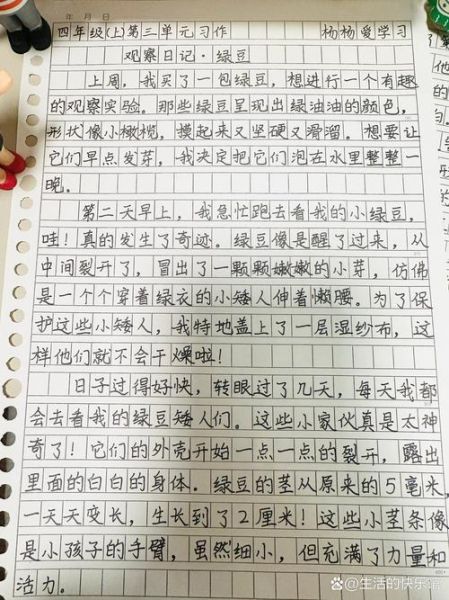 年 月 日
四年级(上)第三单元习作 杨杨爱学习
观察日记·绿豆
上周，我买了一包绿豆，想进行一个有趣
的观察实验。那些绿豆呈现出绿油油的颜色，
形状像小橄榄，摸起来又坚硬又滑溜。想要让
它们早点发芽，我决定把它们泡在水里整整一
晚。
第二天早上，我急忙跑去看我的小绿豆，
哇！真的发生了奇迹。绿豆像是醒了过来，从
中间裂开了，冒出了一颗颗嫩嫩的小芽，仿佛
是一个个穿着绿衣的小矮人伸着懒腰。为了保
护这些小矮人，我特地盖上了一层湿纱布，这
样他们就不会干燥啦！
日子过得好快，转眼过了几天，每天我都
会去看我的绿豆矮人们。这些小家伙真是太神
奇了！它们的外壳开始一点一点的裂开，露出
里面的白白的身体。绿豆的茎从原来的5毫米，
一天天变长，生长到了2厘米！这些小茎条像
是小孩子的手臂，虽然细小，但充满了力量和
活力。
@生活的快乐馆